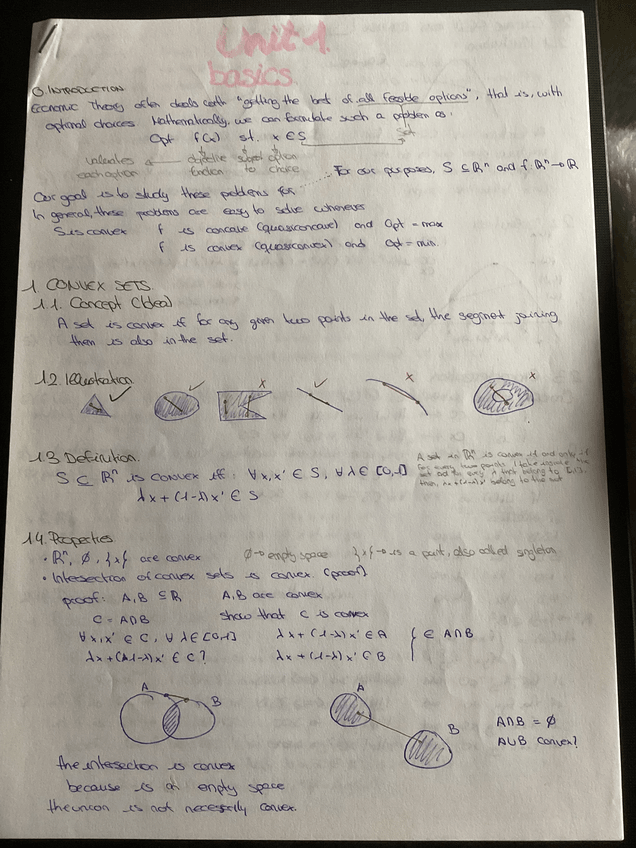 Unit 1.
basics
0. INTRODUCTION
Economic Theory often deals with "getting the best of all feasible options", that is, with
optimal choices. Mathematically, we can formulate such a problem as:
Opt f(x) st. x ∈ S
set
valuates each option
objective function
subject to
option choice
For our purposes, S ⊆ ℝⁿ and f: ℝⁿ→ℝ
Our goal is to study these problems for
In general, these problems are easy to solve whenever
S is convex f is concave (quasiconcave) and Opt = max
f is convex (quasiconvex) and Opt = min.
1. CONVEX SETS
1.1. Concept (Idea)
A set is convex if for any given two points in the set, the segment joining
them is also in the set.
1.2. Illustration
1.3 Definition.
S ⊆ ℝⁿ is convex iff: ∀x,x' ∈ S, ∀λ ∈ [0,1]
λx + (1-λ)x' ∈ S
A set in ℝⁿ is convex if and only if
for every two points I take inside the
set and for every λ belonging to [0,1],
then, λx+(1-λ)x' belong to the set
1.4. Properties
• ℝⁿ, ∅, {x} are convex ∅→ empty space {x}→ is a point, also called singleton
• Intersection of convex sets is convex. (proof)
proof: A,B ⊆ ℝ A,B are convex
C = A∩B show that C is convex
∀x,x' ∈ C, ∀λ ∈ [0,1] λx + (1-λ)x' ∈ A
λx+(1-λ)x' ∈ C? λx + (1-λ)x' ∈ B
{ ∈ A∩B
A B
A
B
A∩B = ∅
A∪B convex?
the intersection is convex
because is an empty space
the union is not necessarily convex.